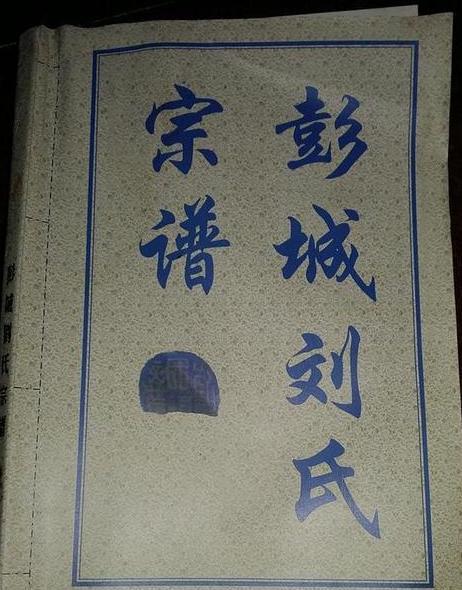 彭城刘氏
宗谱
彭城刘氏宗谱